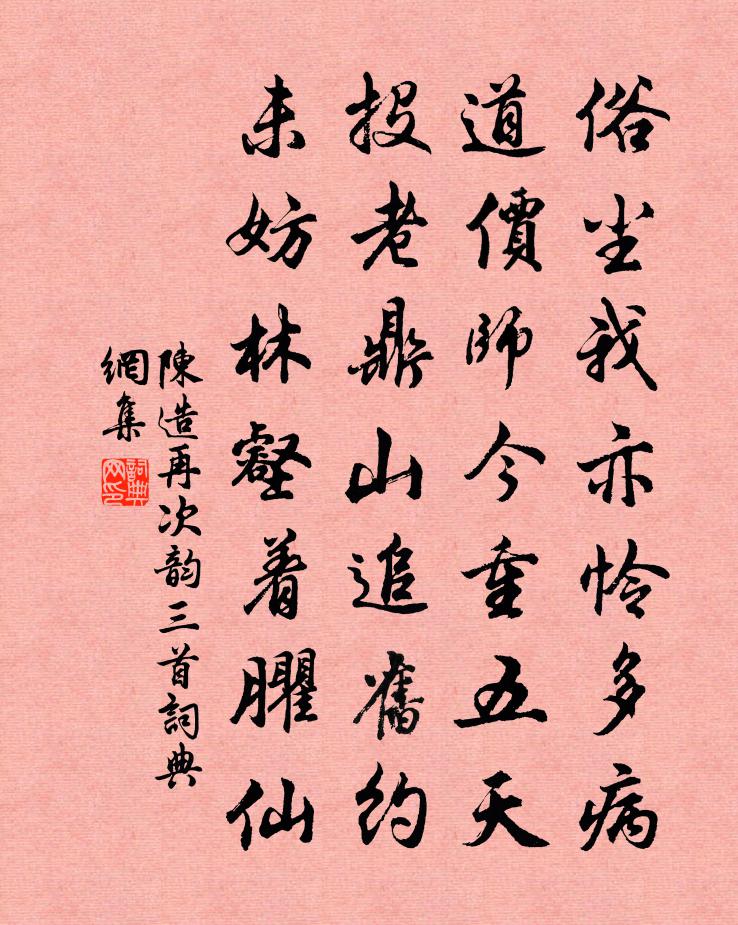 俗尘我亦怜多病
道價師今重五天
投老鼎山追舊约
未妨林壑着臞仙
陳造再次韵三首詞典
網集
詞典
网印